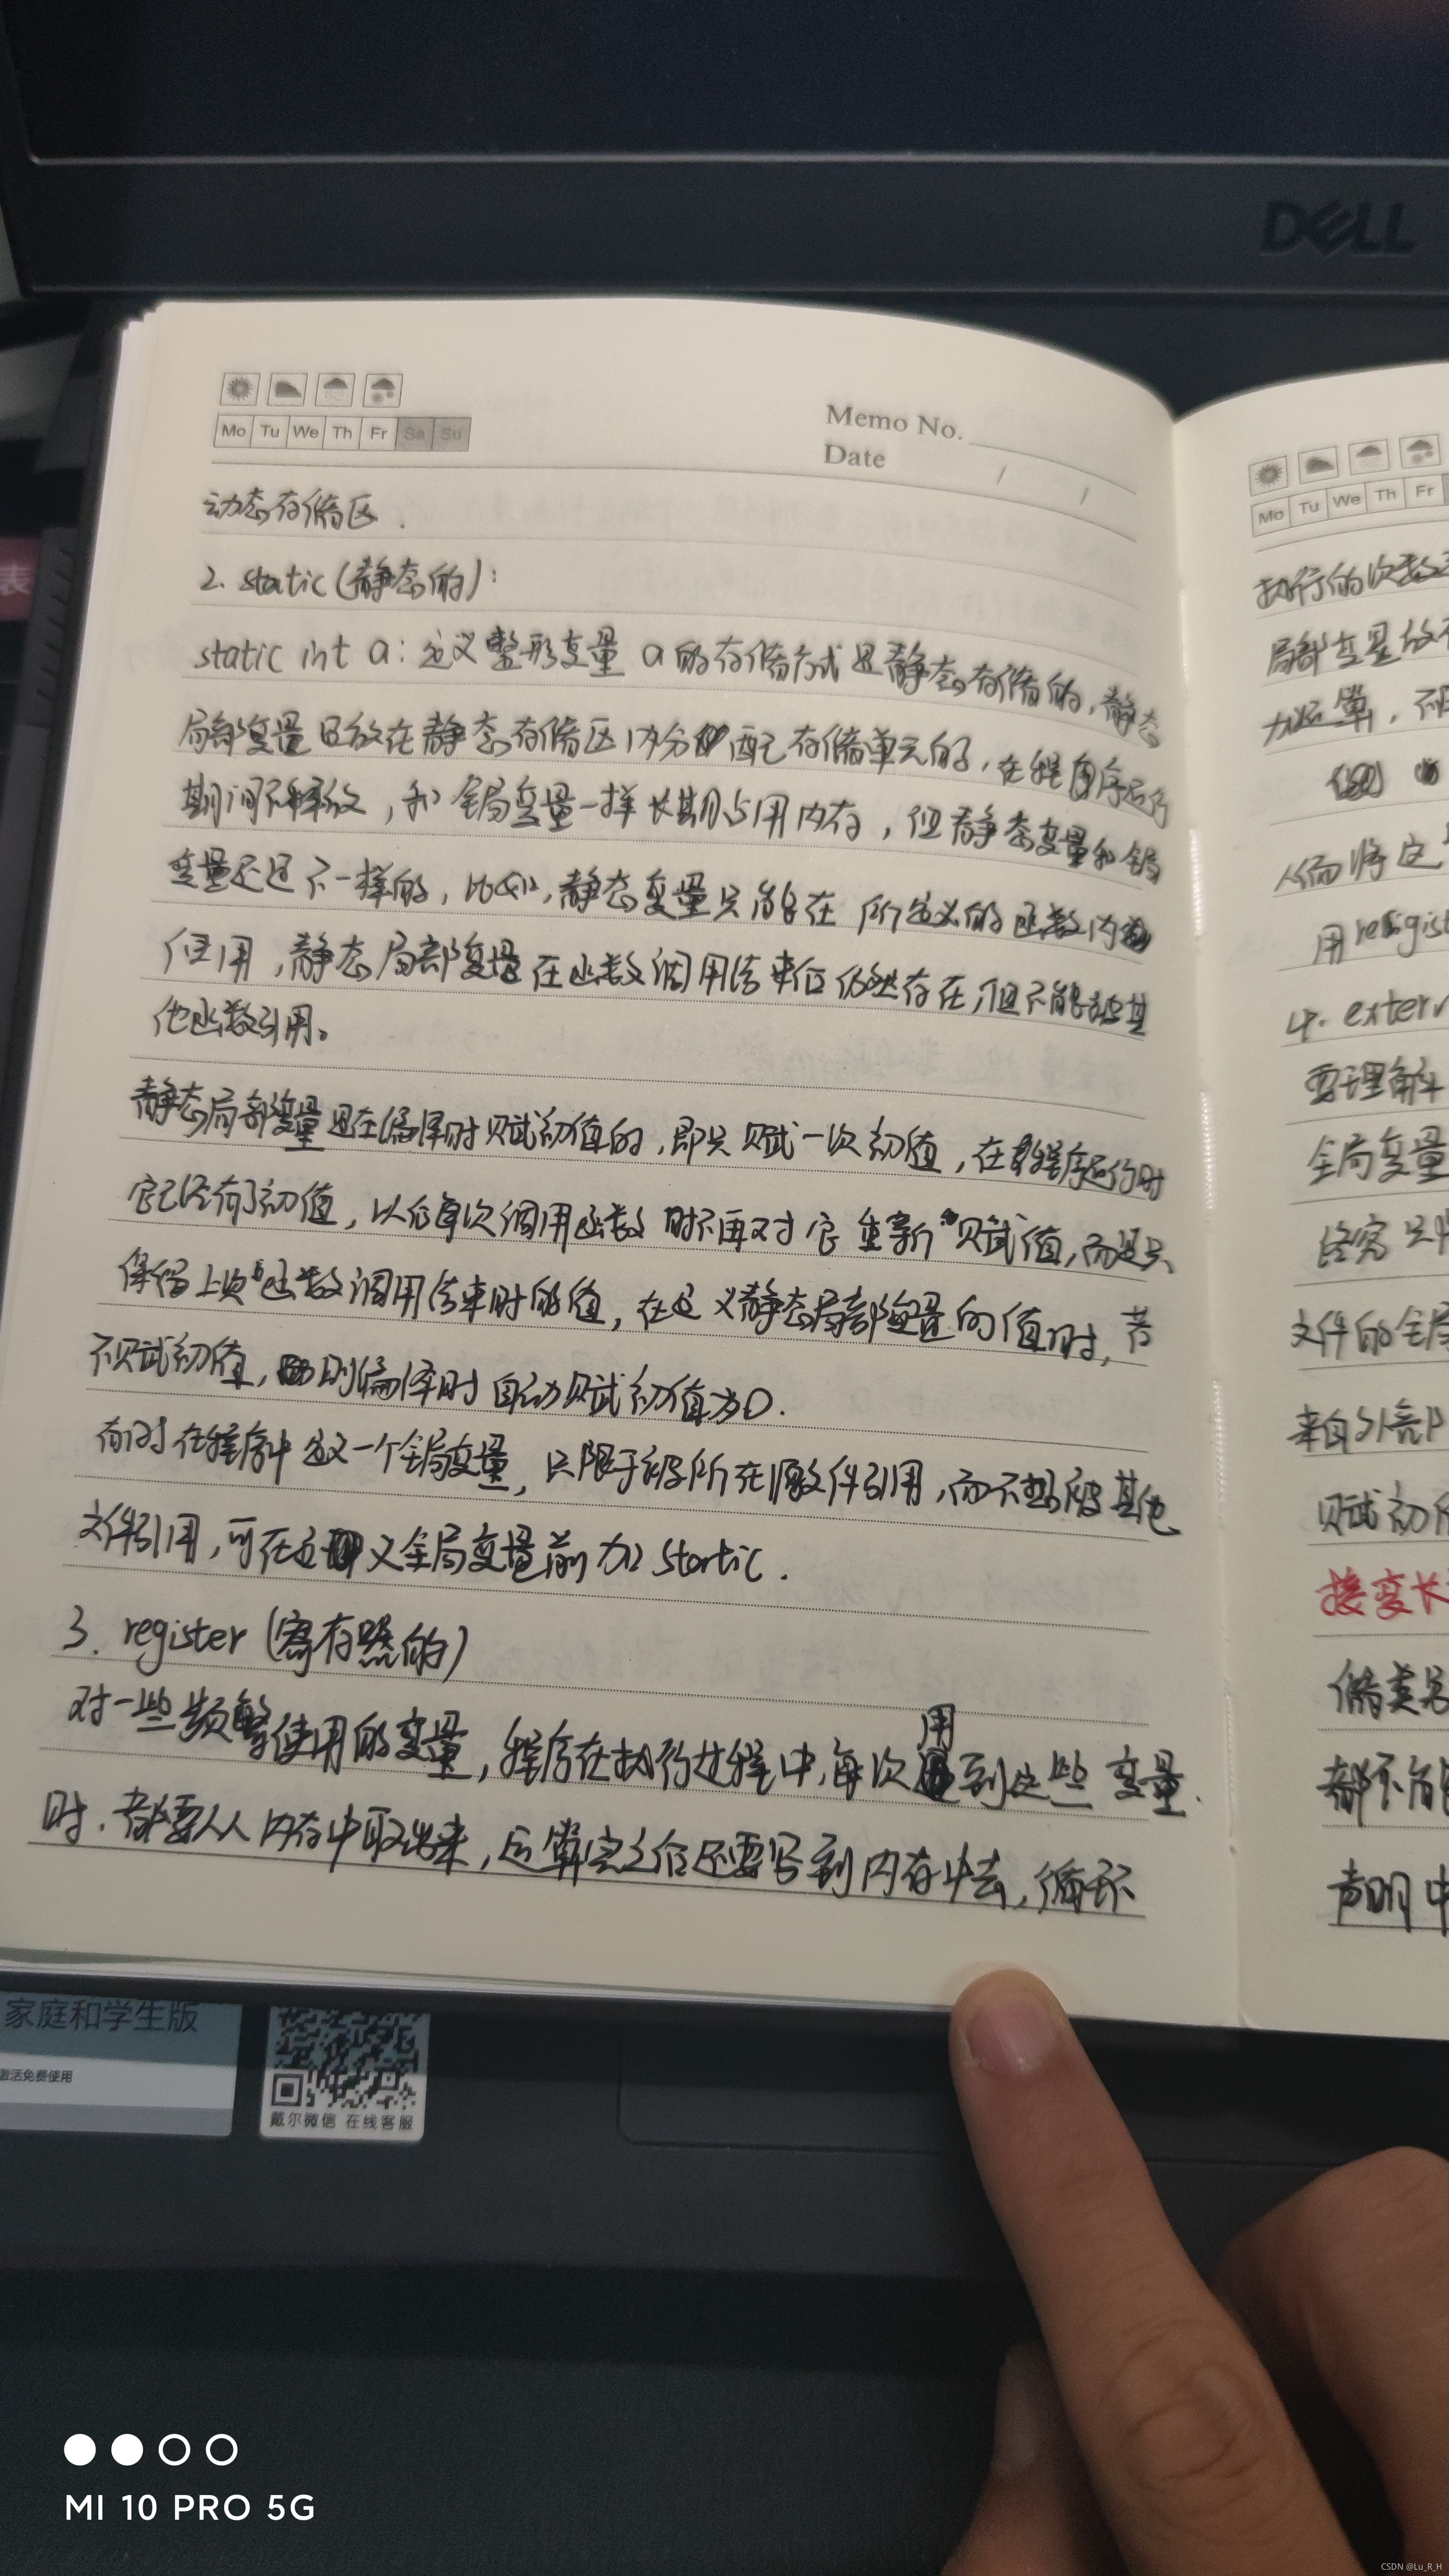 DELL
Mo Tu We Th Fr Sa Su
Memo No.
Date / /
动态存储区.
2. static(静态的):
static int a:定义整形变量 a的存储方式是静态存储的,静态
局部变量是放在静态存储区内分配存储单元的,在程序运行
期间不释放,和全局变量一样长期占用内存,但静态变量和全局
变量还是不一样的,比如,静态变量只能在所定义的函数内
使用,静态局部变量在函数调用结束后仍然存在,但不能被其
他函数引用。
静态局部变量是在编译时赋初值的,即只赋一次初值,在程序运行时
它已经有了初值,以后每次调用函数时不再对它重新赋值,而是只
保留上次函数调用结束时的值,在定义静态局部变量的值时,若
不赋初值,则编译时自动赋初值为0.
有时在程序中定义一个全局变量,只限于被所在源文件引用,而不能被其他
文件引用,可在定义全局变量前加static.
3. register(寄存器的)
对一些频繁使用的变量,程序在执行过程中,每次用到这些变量.
时.都要从内存中取出来,运算完之后还要写到内存中去,循环
Mo Tu We Th Fr
执行的次数
局部变量放
加运算,不
从而将这
用register
4. extern
要理解
全局变量
文件的全局
来自外部
赋初值
接变长
储类
都不能
声明中
表
家庭和学生版
激活免费使用
戴尔微信 在线客服
MI 10 PRO 5G
CSDN @Lu_R_H